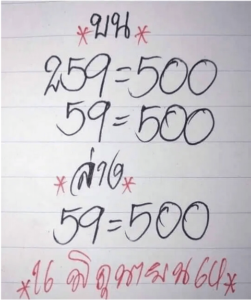 *บน*
259=500
59=500
*ล่าง*
59=500
*16 มิถุนายน 64*